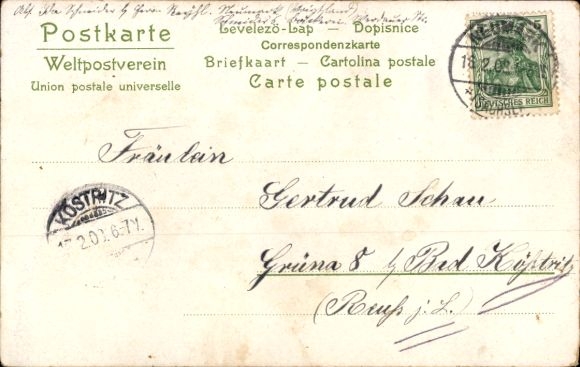 Abs. Ida Schneider b/ Herrn
Neumark (Vogtland)
Postkarte
Weltpostverein
Union postale universelle
Levelező-Lap — Dopisnice
Correspondenzkarte
Briefkaart — Cartolina postale
Carte postale
NEUMARK
DEUTSCHES REICH
KÖSTRITZ
17.2.03.6-7V.
Fräulein
Gertrud Schau
Grüna 8 b/ Bad Köstritz
(Reuß j. L.)